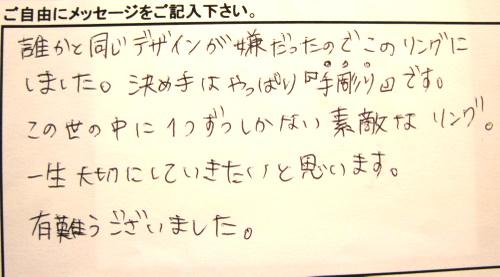 ご自由にメッセージをご記入下さい。
誰かと同じデザインが嫌だったのでこのリングに
しました。決め手はやっぱり『手彫り』です。
この世の中に1つずつしかない素敵なリング。
一生大切にしていきたいと思います。
有難うございました。